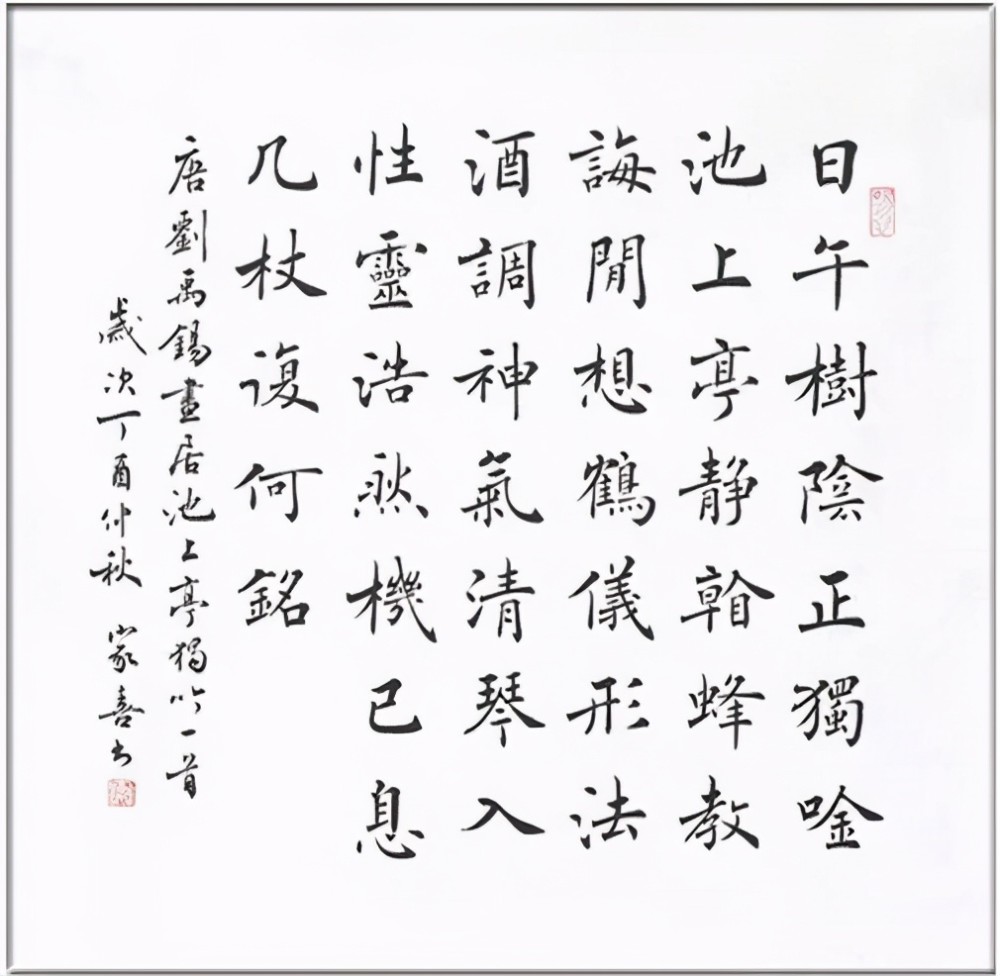 日午樹陰正獨唫
池上亭静看蜂教
誨閒想鶴儀形法
酒調神氣清琴入
性靈浩然機已息
几杖復何銘
唐劉禹錫晝居池上亭獨吟一首
歲次丁酉仲秋 家喜书